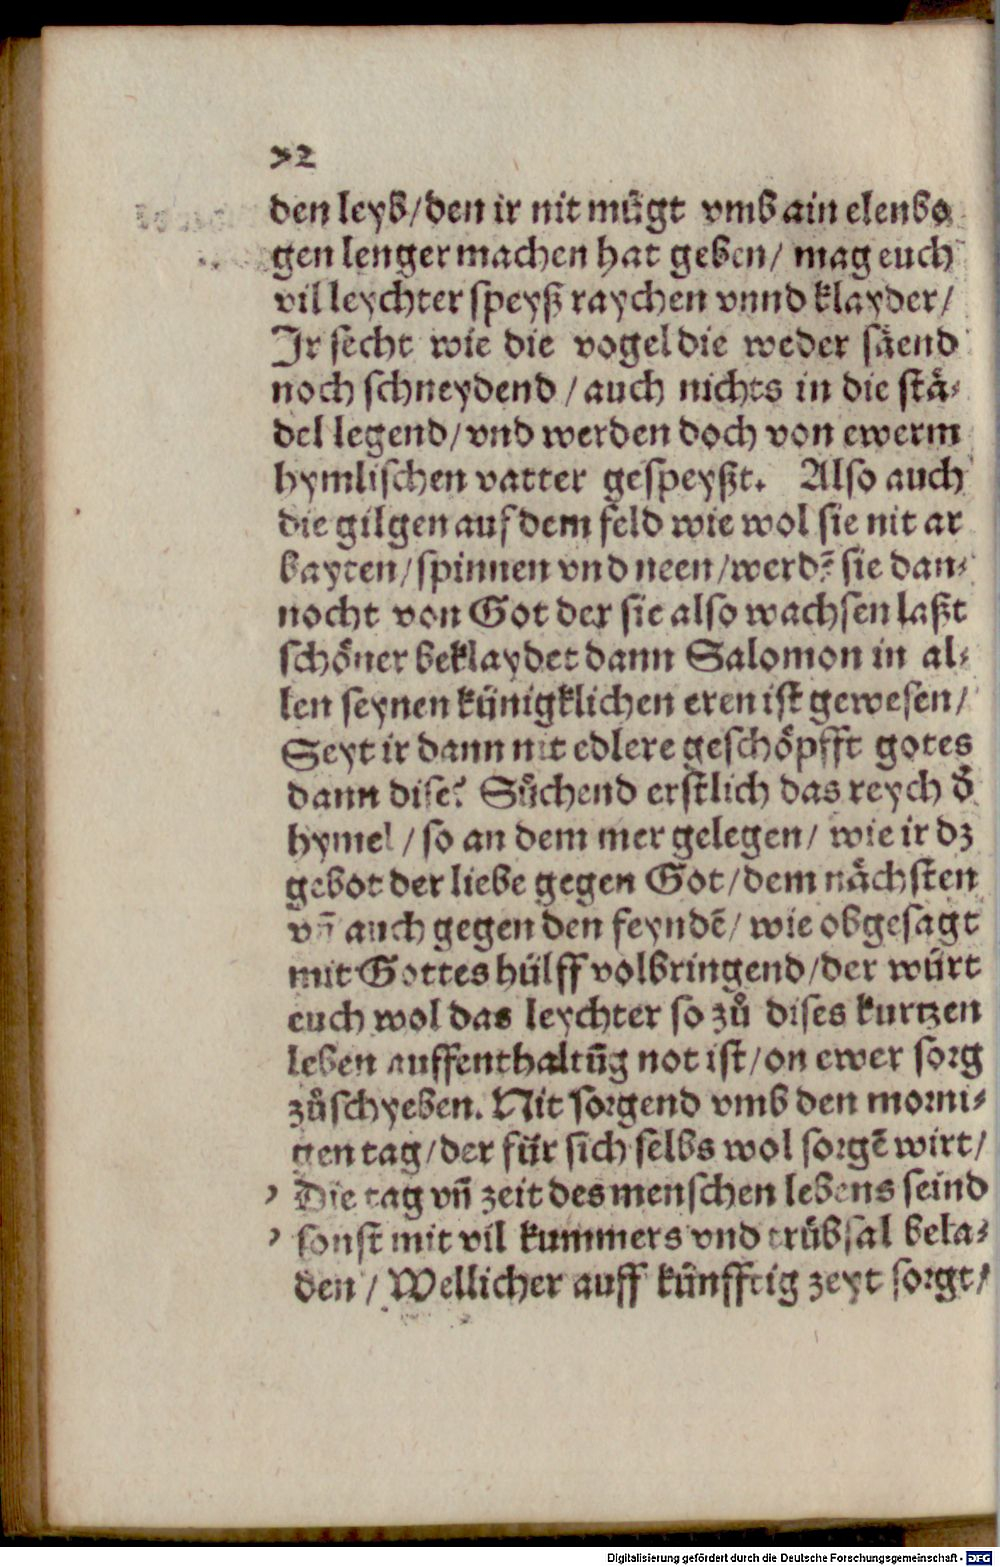 72
den leyb/den ir nit mügt vmb ain elenbo
gen lenger machen hat geben/ mag euch
vil leychter speyß raychen vnnd klayder/
Ir secht wie die vogel die weder säend
noch schneydend /auch nichts in die stä⸗
del legend/vnd werden doch von ewerm
hymlischen vatter gespeyßt. Also auch
die gilgen auf dem feld wie wol sie nit ar
bayten/spinnen vnd neen/werdẽ sie dan⸗
nocht von Got der sie also wachsen laßt
schöner beklaydet dann Salomon in al⸗
len seynen künigklichen eren ist gewesen/
Seyt ir dann nit edlere geschöpfft gotes
dann dise? Süchend erstlich das reych d̕
hymel /so an dem mer gelegen/ wie ir dz
gebot der liebe gegen Got/dem nächsten
vñ auch gegen den feyndẽ/ wie obgesagt
mit Gottes hülff volbringend/der würt
euch wol das leychter so zů dises kurtzen
leben auffenthaltũg not ist/on ewer sorg
zůschyeben. Nit sorgend vmb den morni⸗
gen tag/der für sich selbs wol sorgẽ wirt/
Die tag vñ zeit des menschen lebens seind
sonst mit vil kummers vnd trübsal bela⸗
den / Wellicher auff künfftig zeyt sorgt/
Digitalisierung gefördert durch die Deutsche Forschungsgemeinschaft - DFG